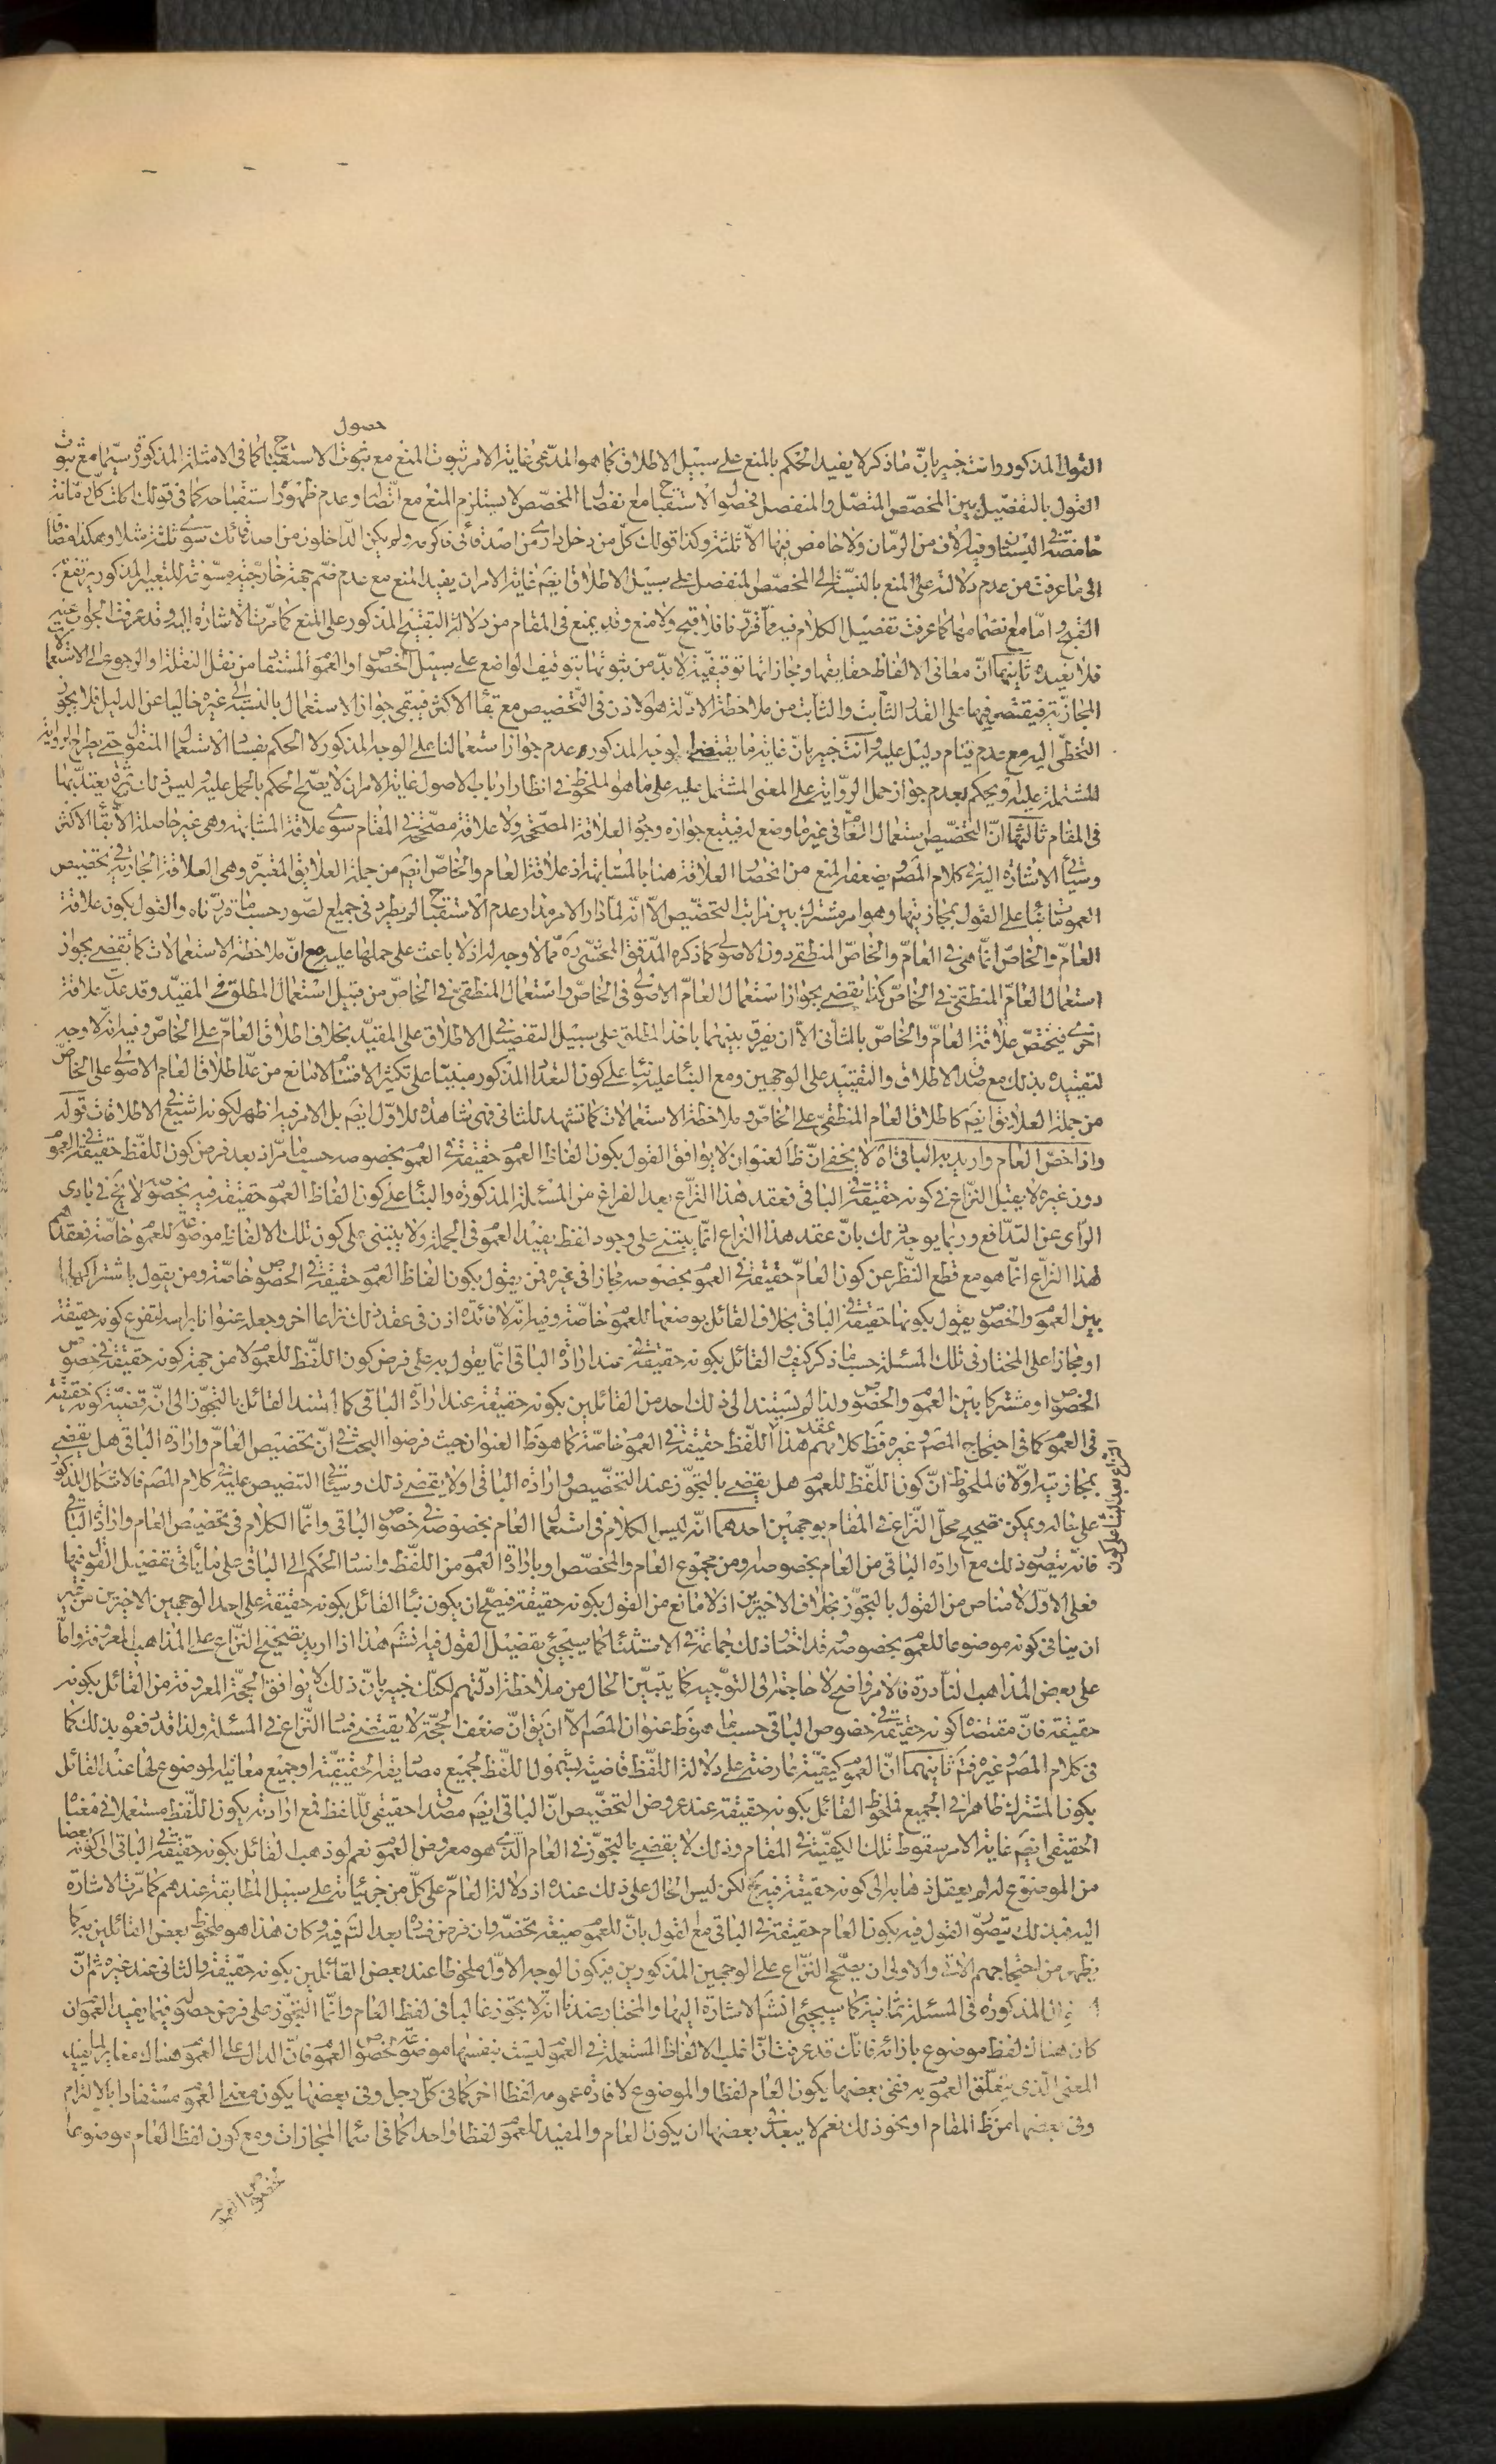 حصول
القول المذكور وانت خبير بانّ ما ذكر لا يفيد الحكم بالمنع على سبيل الاطلاق كما هو المدّعى غاية الامر ثبوت المنع مع ثبوت الاستقباح كما فى الامثلة المذكورة سيّما مع ثبوت
القول بالتفصيل بين المخصّص المتّصل والمنفصل فحصول الاستقباح مع انفصال المخصّص لا يستلزم المنع مع اتّصاله وعدم ظهور استقباحه كما فى قولك اكلت كلّ رمّانة
حامضة فى البستان وفيه الاف من الرمّان ولا حامض فيها الّا ثلثة وكذا قولك كلّ من دخل دارى من اصدقائى فاكرمه ولم يكن الدّاخلون من اصدقائك سوى ثلثة مثلا وهكذا مضافا
الى ما عرفت من عدم دلالته على المنع بالنسبة الى المخصّص المنفصل على سبيل الاطلاق ايضم غاية الامر ان يفيد المنع مع عدم ضمّ جهة خارجيّة مسوّغة للتعبير المذكور يرتفع
القبح واما مع انضمامها كما عرفت تفصيل الكلام فيه ممّا قرّرنا فلا قبح ولا منع وقد يمنع فى المقام من دلالة التقبيح المذكور على المنع كما مرّت الاشارة اليه وقد عرفت الجواب عنه
فلا نعيده ثانيها انّ معانى الالفاظ حقايقها ومجازاتها توقيفيّة لا بدّ من ثبوتها بتوقيف الواضع على سبيل الخصوص او العموم المستفاد من نقل النقلة والرجوع الى الاستعمالات
المجازية فيقتصر فيها على القدر الثابت والثابت من ملاحظة الادلة هو الاذن فى التخصيص مع بقاء الاكثر فيبقى جواز الاستعمال بالنسبة الى غيره خاليا عن الدليل فلا يجوز
التخطّى اليه مع عدم قيام دليل عليه وانت خبير بانّ غاية ما يقتضيه الوجه المذكور عدم جواز استعمالنا على الوجه المذكور لا الحكم بفساد الاستعمال المنقول حتى يطرح الرواية
المشتملة عليه ويحكم بعدم جواز حمل الرّواية على المعنى المشتمل عليه على ما هو الملحوظ فى انظار ارباب الاصول غاية الامر ان لا يصحّ الحكم بالحمل عليه وليس فى ذلك ثمرة يعتدّ بها
فى المقام ثالثها انّ التخصيص استعمال العامّ فى غير ما وضع له فيتبع جوازه وجود العلاقة المصحّحة ولا علاقة مصحّحة فى المقام سوى علاقة المشابهة وهى غير حاصلة الّا ببقاء الاكثر
وسيأتى الاشارة اليه فى كلام المصم ويضعفه المنع من انحصار العلاقة هنا بالمشابهة اذ علاقة العام والخاصّ ايضم من جملة العلايق المعتبرة وهى العلاقة الجارية فى تخصيص
العمومات بناء على القول بمجازيتها وهو امر مشترك بين مراتب التخصيص الّا انّه لمّا دار الامر مدار عدم الاستقباح لم يطرد فى جميع الصّور حسب ما قرّرناه والقول بكون علاقة
العامّ والخاصّ انّما هى فى العامّ والخاصّ المنطقى دون الاصولى كما ذكره المدقّق المحشّى ره ممّا لا وجه له اذ لا باعث على حملها عليه مع انّ ملاحظة الاستعمالات كما تقضى بجواز
استعمال العامّ المنطقى فى الخاصّ كذا تقضى بجواز استعمال العامّ الاصولى فى الخاصّ واستعمال المنطقىّ فى الخاصّ من قبيل استعمال المطلق فى المقيّد وقد عدّت علاقة
اخرى فيختصّ علاقة العامّ والخاصّ بالثانى الّا ان يفرق بينهما باخذ المطلق على سبيل التفصيل الاطلاق على المقيّد بخلاف اطلاق العامّ على الخاصّ وفيه انّه لا وجه
لتقييده بذلك مع صدق الاطلاق والتقييد على الوجهين ومع البناء عليه بناء على كون التعداد المذكور مبنيّا على تكثير الاقسام لا مانع من عدّ اطلاق العام الاصولى على الخاصّ
من جملة العلايق ايضم كاطلاق العام المنطقىّ على الخاصّ وملاحظة الاستعمالات كما تشهد للثانى فهى شاهدة للاوّل ايضم بل الامر فيه اظهر لكونه اشيع فى الاطلاقات قوله
واذا خصّ العام واريد به الباقى اه لا يخفى انّ ظ العنوان لا يوافق القول بكون الفاظ العموم حقيقة فى العموم بخصوصه حسب ما مرّ اذ بعد فرض كون اللفظ حقيقة فى العموم
دون غيره لا يقبل النّزاع فى كونه حقيقة فى الباقى فعقد هذا النّزاع بعد الفراغ من المسئلة المذكورة والبناء على كون الفاظ العموم حقيقة فيه بخصوصه لا يخ فى بادى
الرّأى عن التّدافع وربما يوجّه ذلك بانّ عقد هذا النزاع انّما يبتنى على وجود لفظ يفيد العموم فى الجملة ولا يبتنى على كون تلك الالفاظ موضوعة للعموم خاصّة فعقدهم
هذا النزاع انّما هو مع قطع النّظر عن كون العامّ حقيقة فى العموم بخصوصه مجازا فى غيره فمن يقول بكون الفاظ العموم حقيقة فى الخصوص خاصّة ومن يقول باشتراكها
بين العموم والخصوص يقول بكونها حقيقة فى الباقى بخلاف القائل بوضعها للعموم خاصّة وفيه انّه لا فائدة اذن فى عقد ذلك نزاعا اخر وجعله عنوانا براسه لتفرّع كونه حقيقة
او مجازا على المختار فى تلك المسئلة حسب ما ذكر كيف والقائل بكونه حقيقة فى عند ارادة الباقى انّما يقول به على فرض كون اللّفظ للعموم لا من جهة كونه حقيقة فى خصوص
الخصوص او مشتركا بين العموم والخصوص ولذا لم يستند الى ذلك احد من القائلين بكونه حقيقة عند ارادة الباقى كما استند القائل بالتجوّز الى انّ قضيّة كونه حقيقة
فى العموم كما فى احتجاج المصم وغيره فظ كلامهم عقد هذا اللّفظ حقيقة فى العموم خاصّة كما هو ظ العنوان حيث فرضوا البحث فى انّ تخصيص العامّ وارادة الباقى هل يقضى
النزاع بعد البناء على كون
بمجازيته اولا فالملحوظ انّ كون اللّفظ للعموم هل يقضى بالتجوّز عند التخصيص وارادة الباقى او لا يقضى ذلك وسيأتى التنصيص عليه فى كلام المصم فالاشكال المذكور
على حاله ويمكن تصحيح محلّ النّزاع فى المقام بوجهين احدهما انّه ليس الكلام فى استعمال العام بخصوصه فى خصوص الباقى وانّما الكلام فى تخصيص العام وارادة الباقى
فانّه يتصوّر ذلك مع ارادة الباقى من العام بخصوصه ومن مجموع العام والمخصّص او بارادة العموم من اللفظ واسناد الحكم الى الباقى على ما يأتى تفصيل القول فيها
فعلى الاوّل لا مناص من القول بالتجوّز بخلاف الاخيرين اذ لا مانع من القول بكونه حقيقة فيصحّ ان يكون بناء القائل بكونه حقيقة على احد الوجهين الاخيرين من غير
ان ينافى كونه موضوعا للعموم بخصوصه وقد اختار ذلك جماعة فى الاستثناء كما سيجئ تفصيل القول فيه انشم هذا اذا اريد تصحيح النّزاع على المذاهب المعروفة وامّا
على بعض المذاهب النّادرة فالامر واضح لا حاجة الى التوجيه كما يتبيّن الحال من ملاحظة ادلّتهم لكنّك خبير بانّ ذلك لا يوافق الحجّة المعروفة من القائل بكونه
حقيقة فانّ مقتضاها كونه حقيقة فى خصوص الباقى حسب ما هو ظ عنوان المصم الّا ان يق انّ ضعف الحجّة لا يقتضى فساد النّزاع فى المسئلة ولذا قد دفعوه بذلك كما
فى كلام المصم وغيره فتم ثانيهما انّ العموم كيفيّة عارضة على دلالة اللّفظ قاضية بشمول اللّفظ لجميع مصاديقه الحقيقيّة او جميع معانيه الموضوع لها عند القائل
بكون المشترك ظاهرا فى الجميع فملحوظ القائل بكونه حقيقة عند عروض التخصيص انّ الباقى ايضم مصداق حقيقى للّفظ فمع ارادته يكون اللّفظ مستعملا فى معناه
الحقيقى ايضم غاية الامر سقوط تلك الكيفيّة فى المقام وذلك لا يقضى بالتجوّز فى العام الّذى هو معروض العموم نعم لو ذهب القائل بكونه حقيقة فى الباقى الى كونه بعضا
من الموضوع له لم يعقل ذهابه الى كونه حقيقة فيه لكن ليس الحال على ذلك عنده اذ دلالة العامّ على كلّ من جزئياته على سبيل المطابقة عندهم كما مرّت الاشارة
اليه فبذلك يتصوّر القول فيه بكون العام حقيقة فى الباقى مع القول بانّ للعموم صيغة تخصّه وان فرض فساده بعد التّم فيه وكان هذا هو ملحوظ بعض القائلين به كما
يظهر من احتجاجهم الاتى والاولى ان يصحّح النّزاع على الوجهين المذكورين فيكون الوجه الاوّل ملحوظا عند بعض القائلين بكونه حقيقة والثانى عند غيره ثم انّ
المذكورة فى المسئلة ثمانية كما سيجئ انشم الاشارة اليها والمختار عندنا انّه لا تجوّز غالبا فى لفظ العام وانّما التجوّز على فرض حصوله فيما يفيد العموم ان
كان هناك لفظ موضوع بازائه فانّك قد عرفت انّ اغلب الالفاظ المستعملة فى العموم ليست بنفسها موضوعة لخصوص العموم فانّ الدال على العموم هناك مغاير لما يفيد
المعنى الّذى يتعلّق العموم به ففى بعضها يكون العام لفظا والموضوع لافادة عمومه لفظا اخر كما فى كلّ رجل وفى بعضها يكون معنى العموم مستفادا بالالتزام
وفى بعضها من ظ المقام او نحو ذلك نعم لا يبعد فى بعضها ان يكون العام والمفيد للعموم لفظا واحدا كما فى اسماء المجازات ومع كون لفظ العام موضوعا
لخصوص العموم